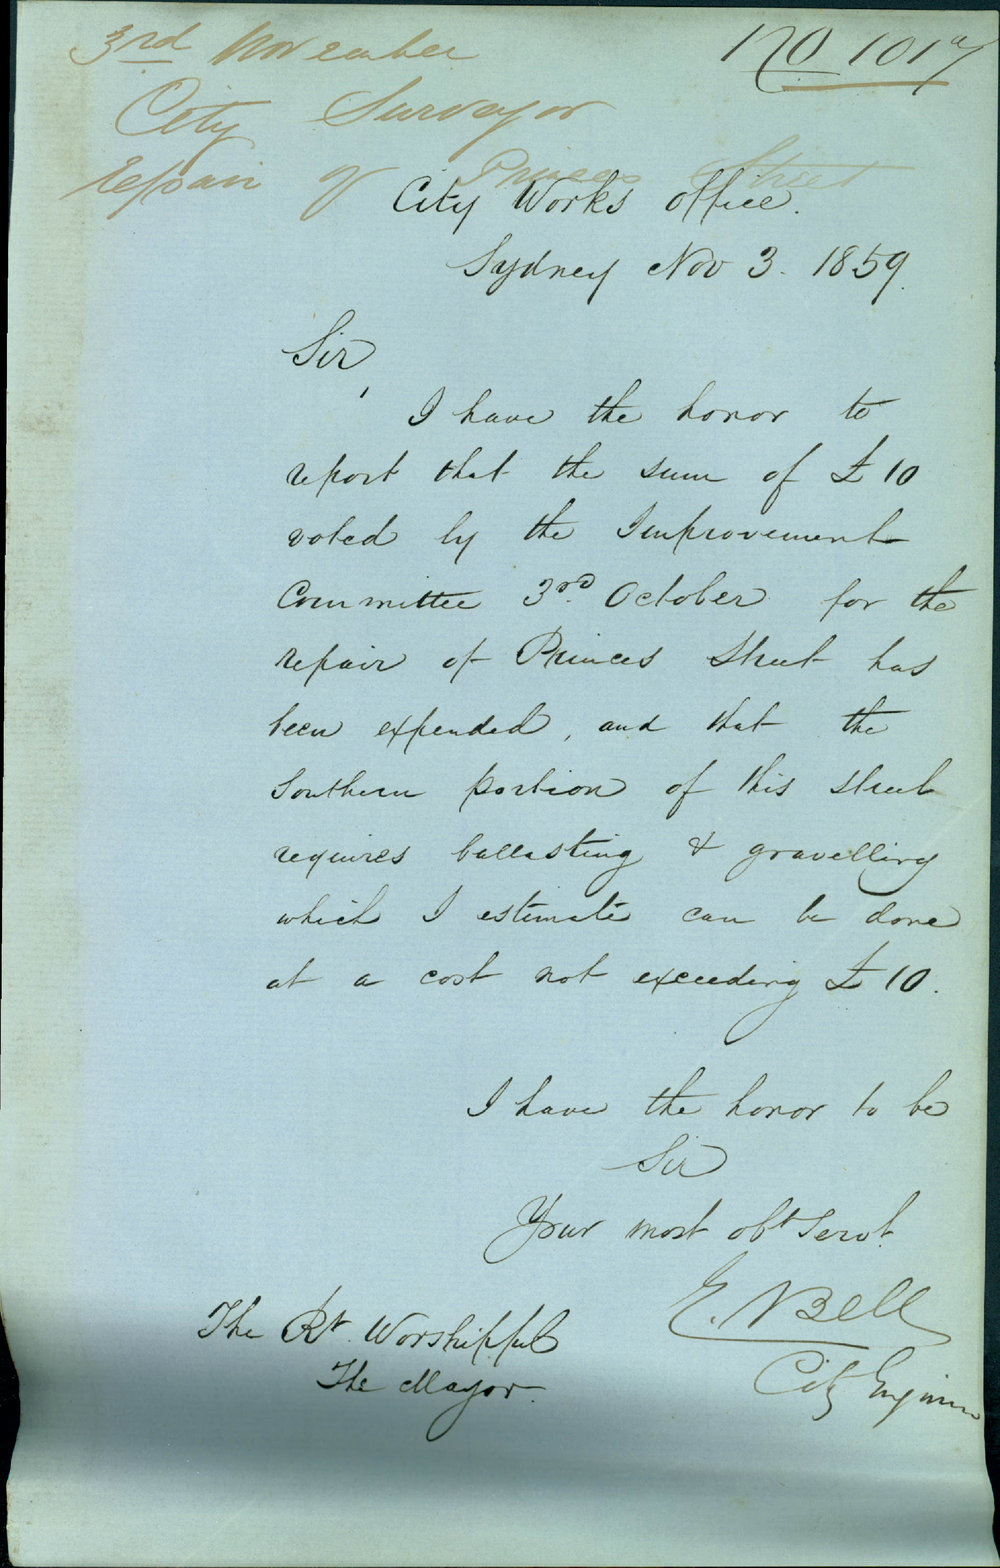 3rd November
No 1017
City Surveyor
repair of Princes Street
City Works Office.
Sydney Nov 3. 1859.
Sir,
I have the honor to
report that the sum of £10
voted by the Improvement
Committee 3rd. October for the
repair of Princes Street has
been expended, and that the
Southern portion of this street
requires ballasting & gravelling
which I estimate can be done
at a cost not exceeding £10.
I have the honor to be
Sir
Your most obt Servt.
E. Bell
City Engineer
The Rt. Worshipful
The Mayor.